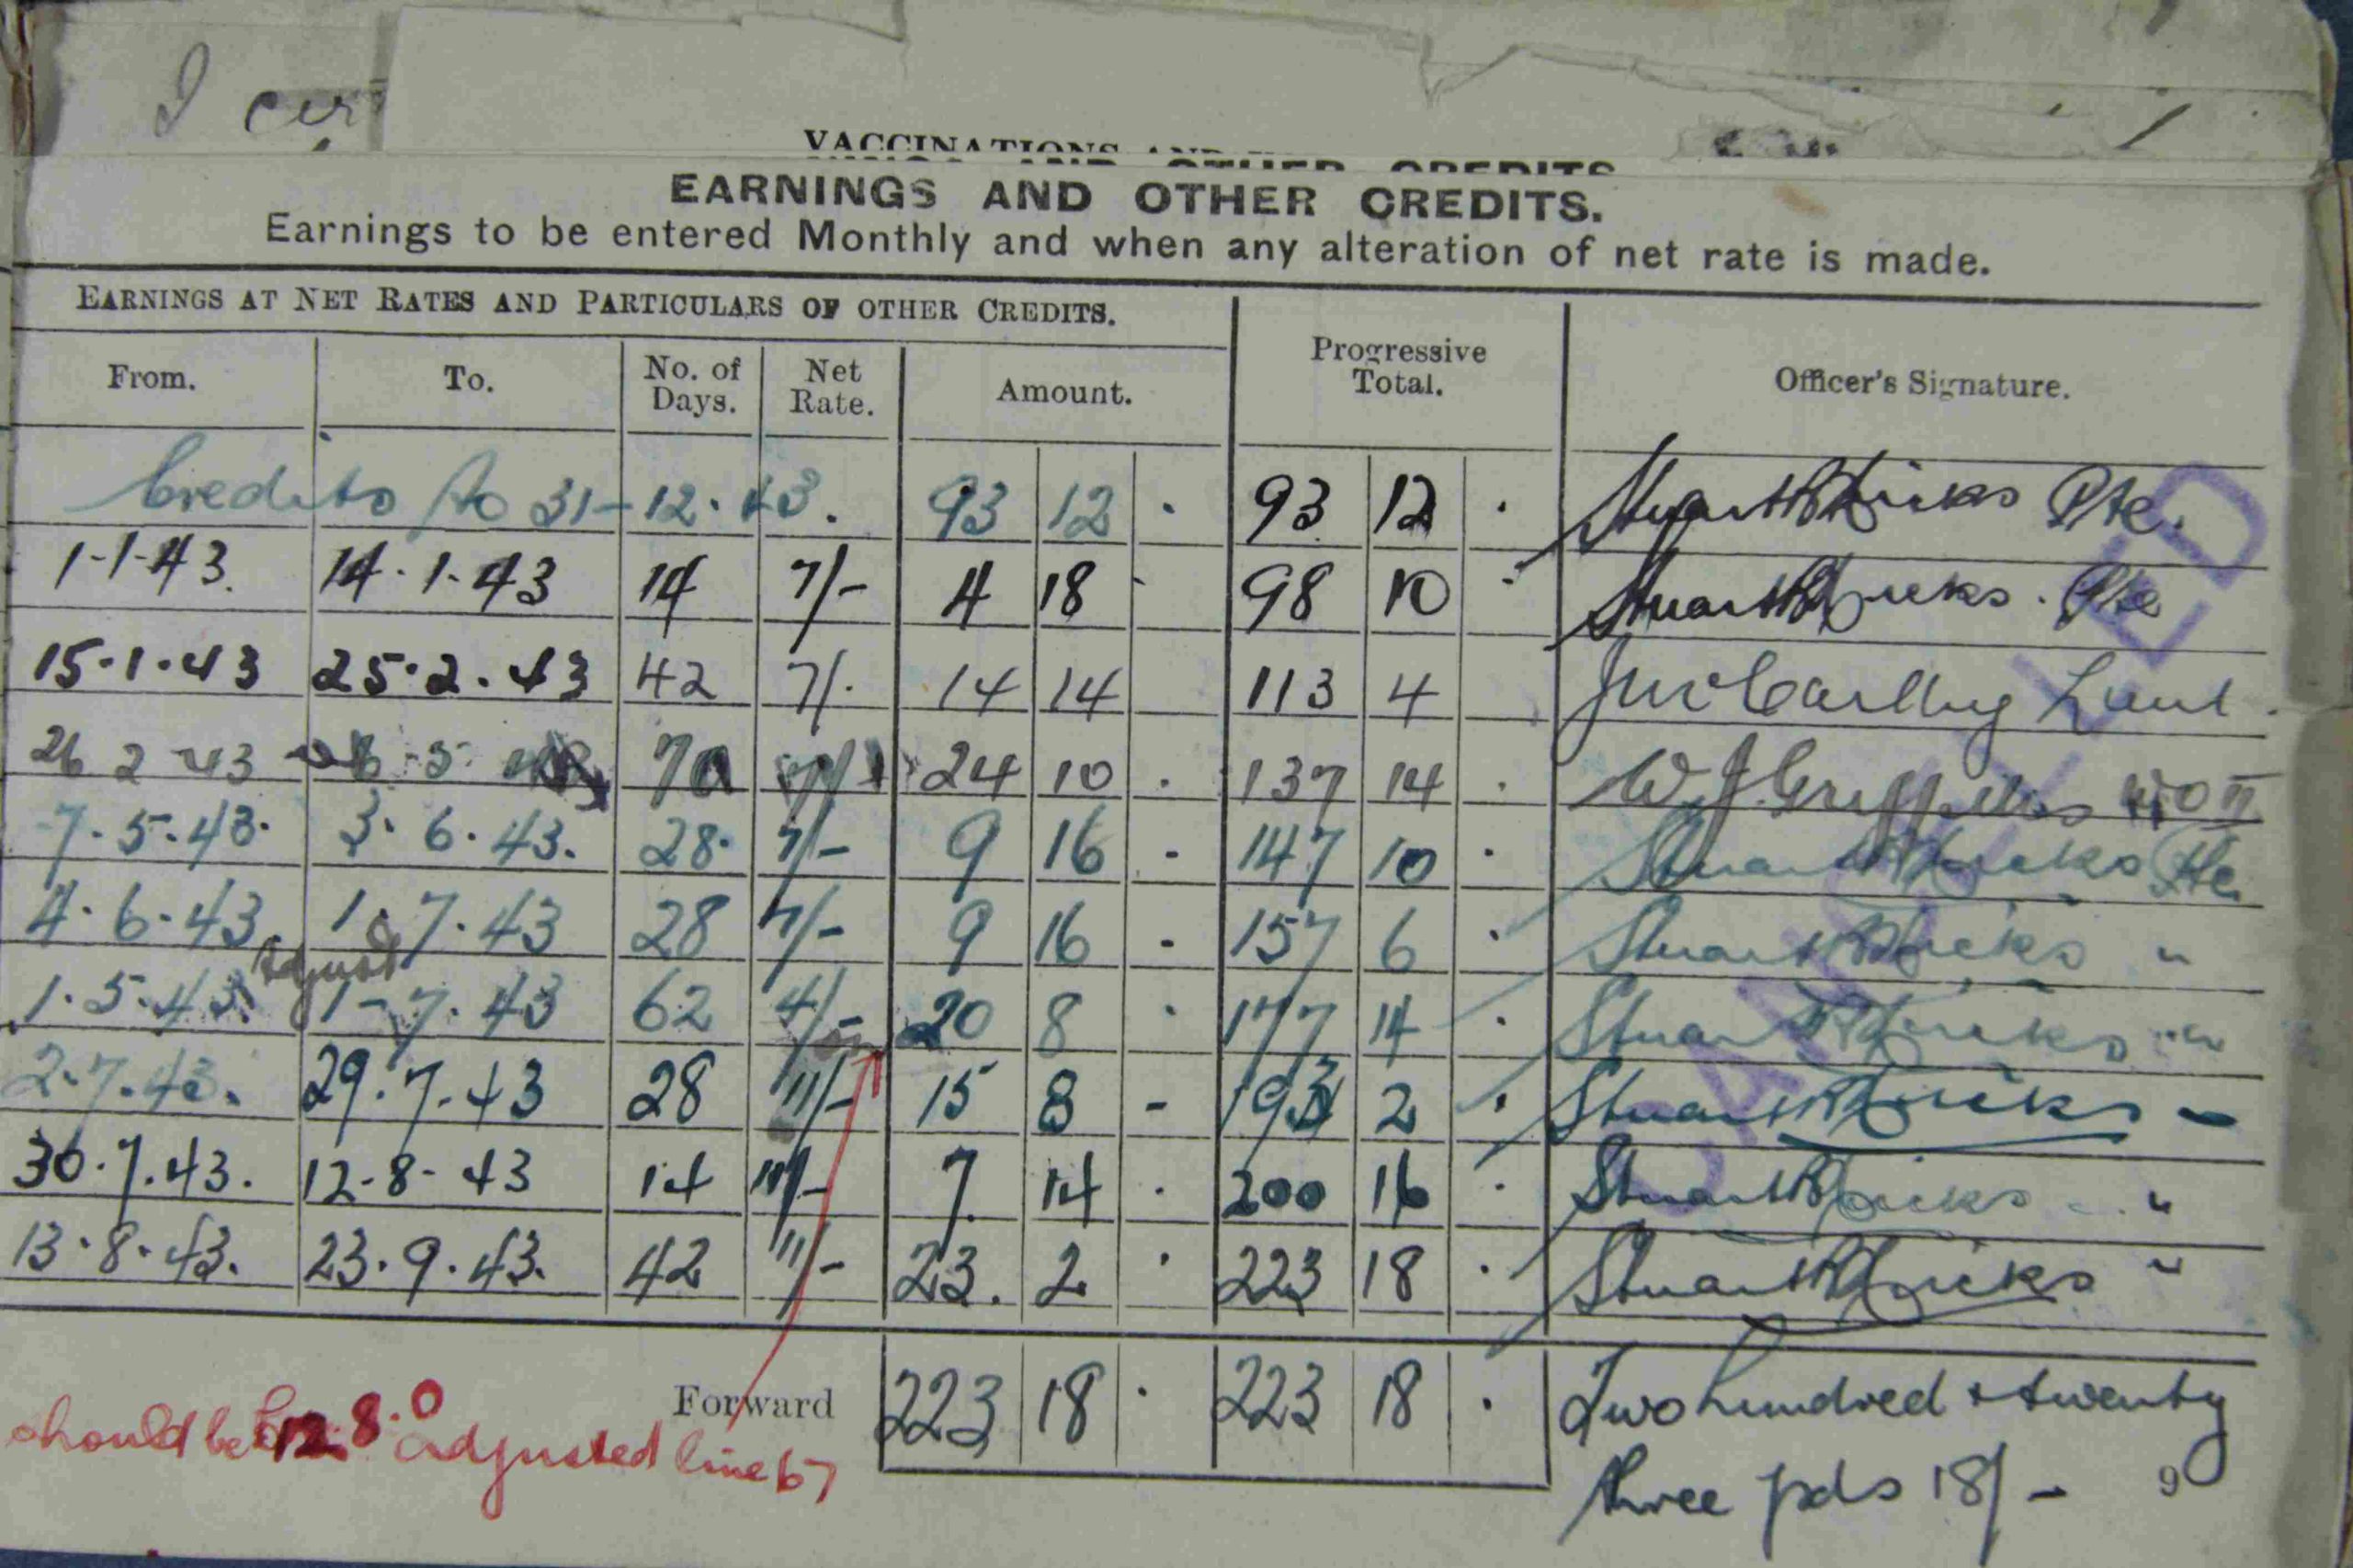 I cer
VACCINATIONS AND
AND OTHER CREDITS
EARNINGS AND OTHER CREDITS.
Earnings to be entered Monthly and when any alteration of net rate is made.
EARNINGS AT NET RATES AND PARTICULARS OF OTHER CREDITS.
From. To. No. of Days. Net Rate. Amount. Progressive Total. Officer's Signature.
Credits to 31-12.43. 93 12 . 93 12 . Stuart Hicks Pte.
1-1-43. 14.1.43 14 7/- 4 18 - 98 10 . Stuart Hicks. Pte
15.1.43 25.2.43 42 7/. 14 14 113 4 Lieut.
26 2 43 6 5 70 7/ 24 10 . 137 14 . W J Griffiths WO II
7.5.43. 3.6.43. 28. 7/- 9 16 - 147 10 . Stuart Hicks Pte.
4.6.43 1.7.43 28 7/- 9 16 - 157 6 . Stuart Hicks "
Adjust
1.5.43. 1-7.43 62 4/- 20 8 . 177 14 . Stuart Hicks "
2.7.43. 29.7.43 28 11/- 15 8 - 193 2 . Stuart Hicks -
30.7.43. 12-8-43 14 11/- 7 14 . 200 16 . Stuart Hicks "
13.8.43. 23.9.43. 42 11/- 23. 2 . 223 18 . Stuart Hicks "
CANCELLED
Forward 223 18 . 223 18 . Two hundred + twenty
three pds 18/-
should be 12 8.0 adjusted line 67
9